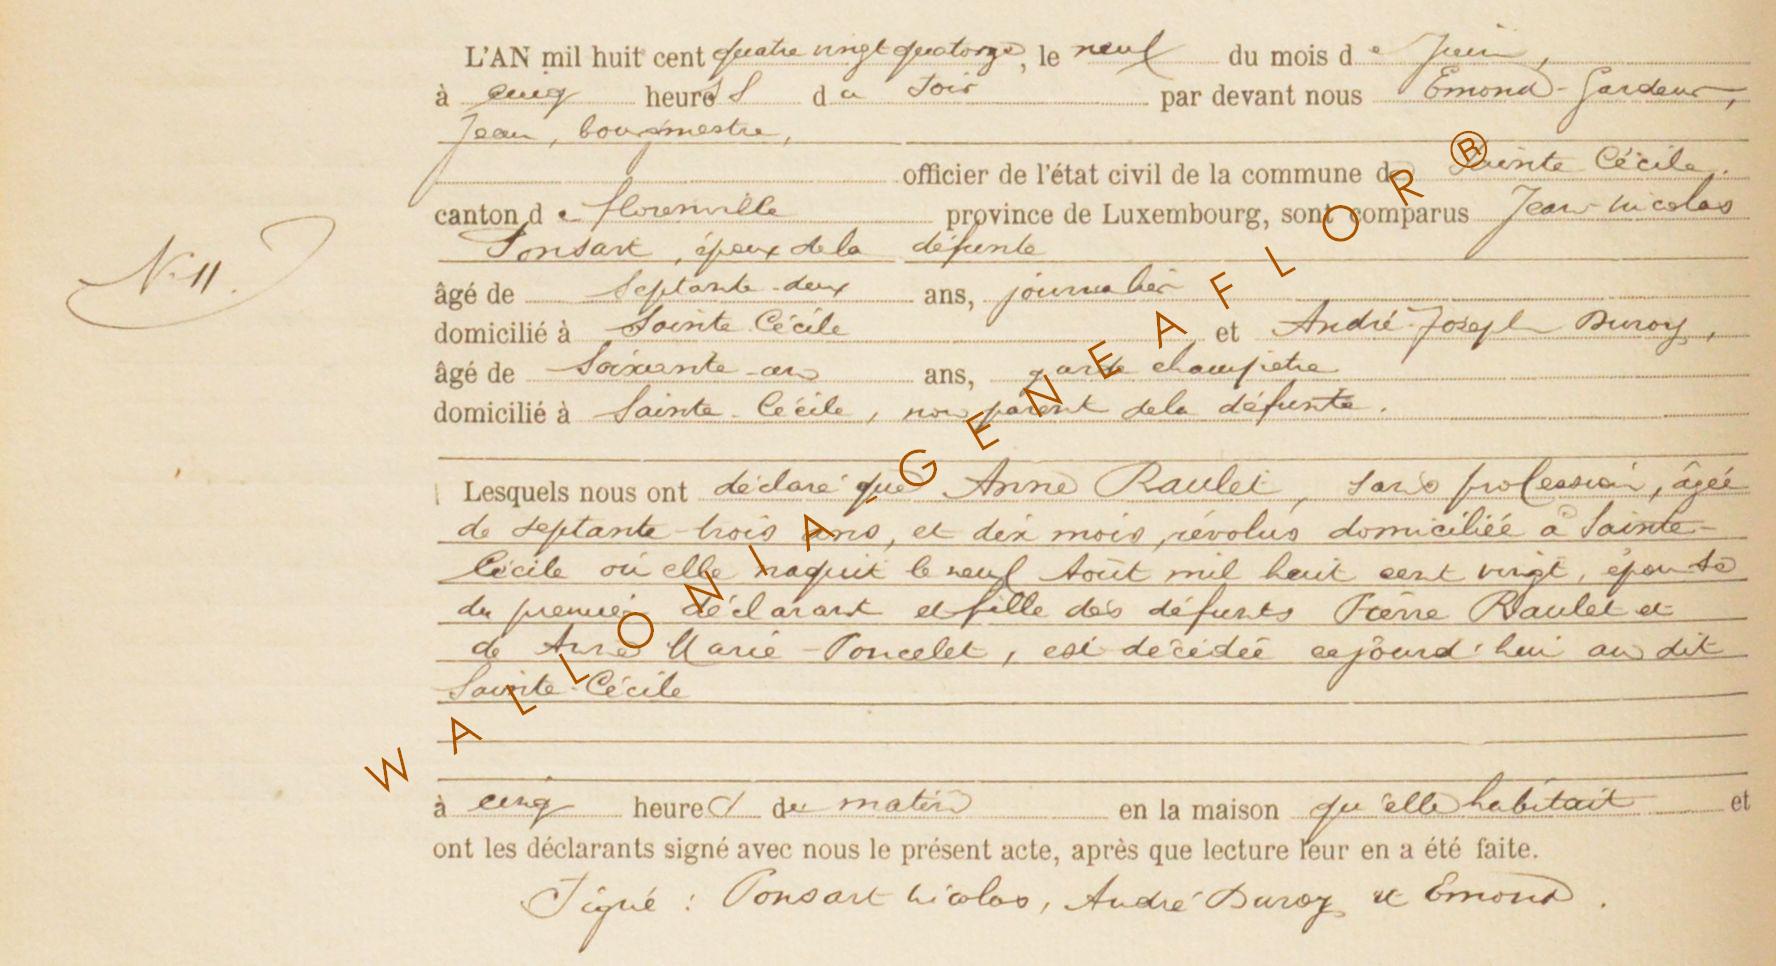 L'AN mil huit cent quatre vingt quatorze, le neuf du mois de Juin,
à cinq heures du soir par devant nous Emond-Gardeur,
Jean, bourgmestre,
officier de l'état civil de la commune de Sainte Cécile.
canton de florenville province de Luxembourg, sont comparus Jean-Nicolas
Ponsart, époux de la défunte
âgé de septante-deux ans, journalier
domicilié à Sainte Cécile et André-Joseph Duroy,
N. 11.
âgé de soixante-un ans, garde champêtre
domicilié à Sainte-Cécile, non parent dela défunte.
Lesquels nous ont déclaré que Anne Raulet, sans profession, âgée
de septante-trois ans, et dix mois, révolus domiciliée à Sainte-
Cécile où elle naquit le neuf Août mil huit cent vingt, épouse
du premier déclarant et fille des défunts Pierre Raulet et
de Anne Marie Poncelet, est décédée cejourd'hui au dit
Sainte-Cécile
à cinq heures du matin en la maison qu'elle habitait et
ont les déclarants signé avec nous le présent acte, après que lecture leur en a été faite.
Signé : Ponsart Nicolas, André Duroy et Emond.
WALLONIA-GENEAFLOR®